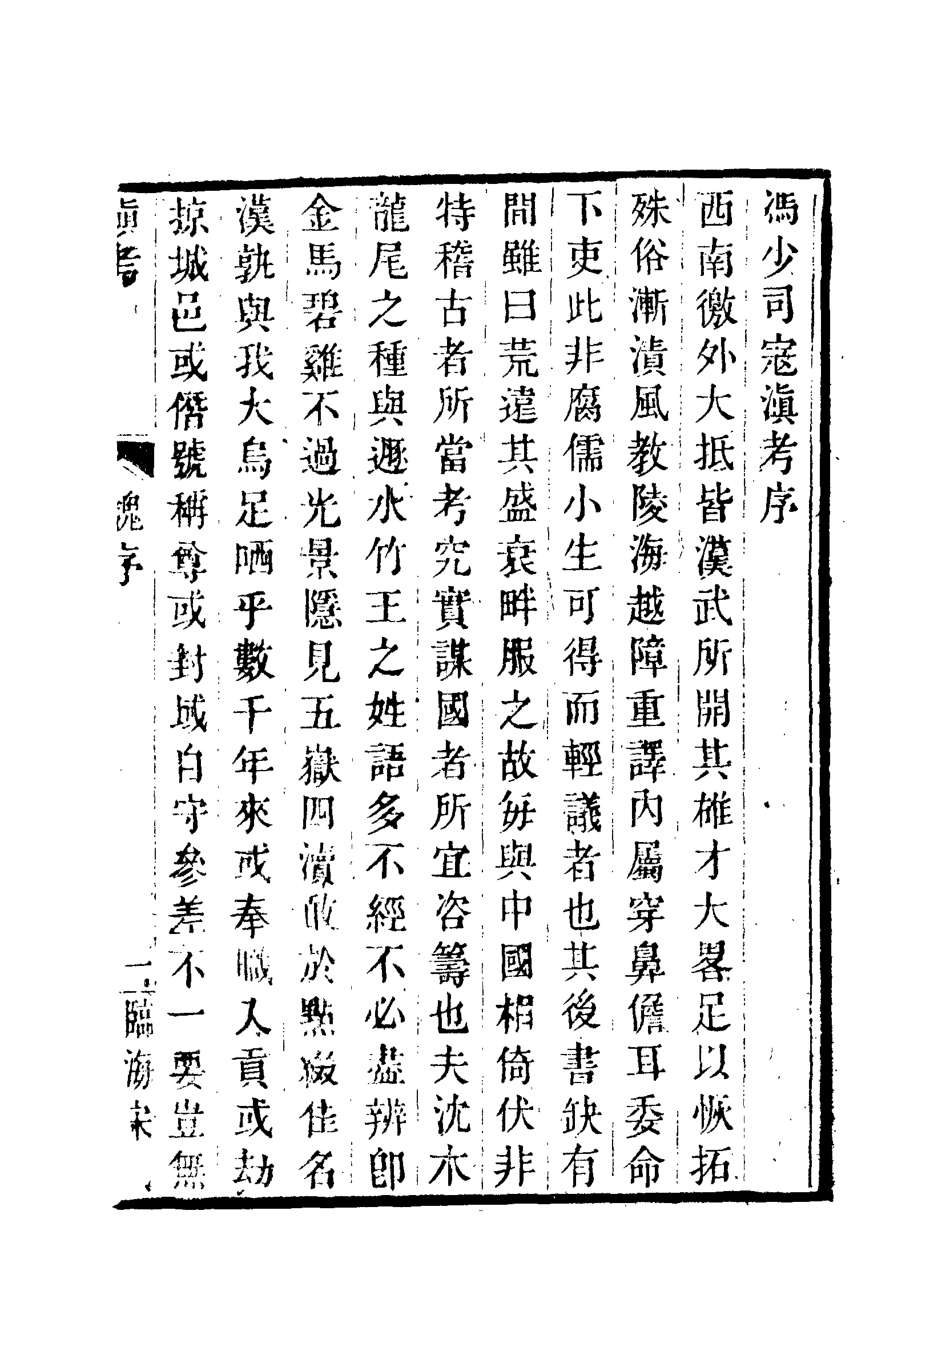 馮少司寇滇考序
西南徼外大抵皆漢武所開其雄才大畧足以恢拓
殊俗漸漬風教陵海越障重譯內屬穿鼻儋耳委命
下吏此非腐儒小生可得而輕議者也其後書缺有
間雖曰荒遠其盛衰畔服之故每與中國相倚伏非
特稽古者所當考究實謀國者所宜咨籌也夫沈木
龍尾之種與遯水竹王之姓語多不經不必盡辨卽
金馬碧雞不過光景隱見五嶽四瀆故於點綴佳名
漢孰與我大烏足哂乎數千年來或奉職入貢或劫
掠城邑或僭號稱尊或封域自守參差不一要豈無
滇考
魂序
一
臨海宋